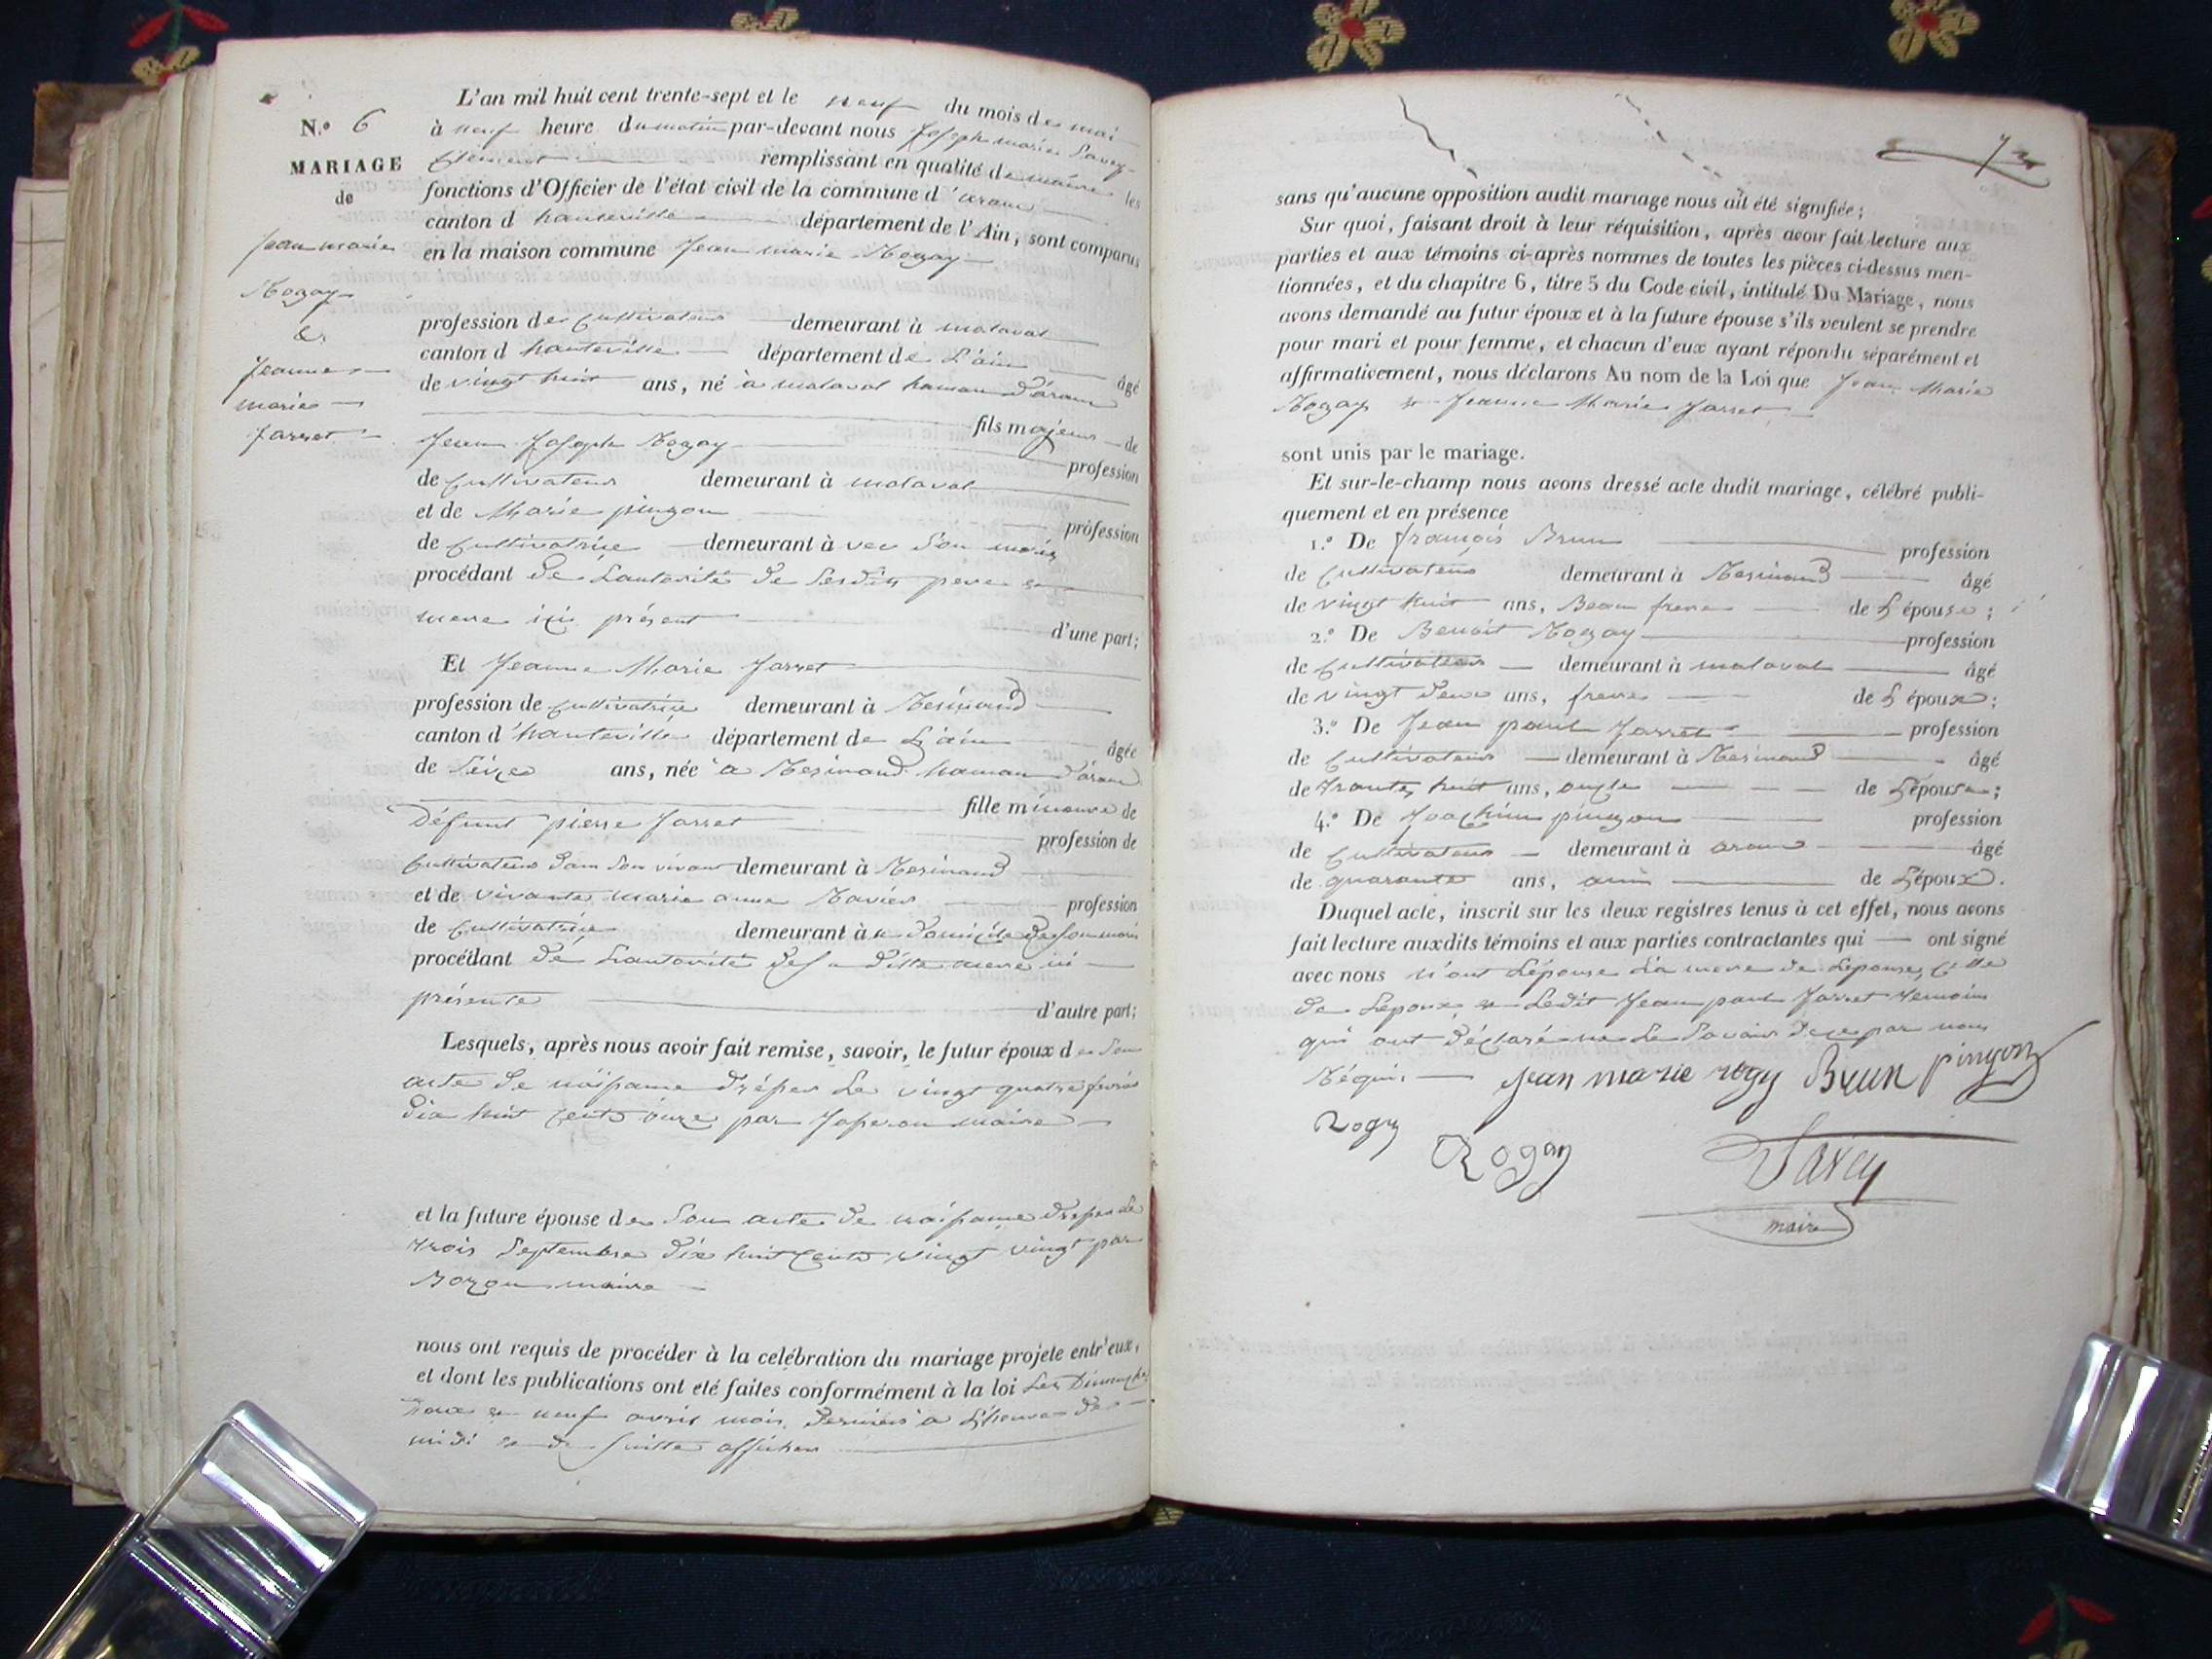 L'an mil huit cent trente-sept et le neuf du mois de mai
N.º 6
à neuf heure du matin par-devant nous Joseph marie Savey
MARIAGE
Clement remplissant en qualité de maire les
de
fonctions d'Officier de l'état civil de la commune d'aranc
canton d hauteville département de l'Ain, sont comparus
Jean marie
en la maison commune Jean marie Rogay
Rogay
&
profession de cultivateur demeurant à malaval
canton d hauteville département de L'ain âgé
Jeanne
de vingt huit ans, né à malaval hamau d'aranc
marie
fils majeur de
Jarret
Jean Joseph Rogay profession
de cultivateur demeurant à malaval
et de Marie pingon profession
de cultivatrice demeurant à vec son mari
procédant de Lautorité de Sesdits pere et
mere ici présent d'une part;
Et Jeanne Marie Jarret
profession de cultivatrice demeurant à Resinand
canton d'hauteville département de L'ain âgée
de Seize ans, née a Resinand hamau d'aranc
fille mineure de
Défunt pierre Jarret profession de
Cultivateur dans son vivant demeurant à Resinand
et de vivante marie anne profession
de cultivatrice demeurant à domicile de son mari
procédant de Lautorité de sa ditte mere ici
présente d'autre part;
Lesquels, après nous avoir fait remise, savoir, le futur époux de Son
acte de naissance drésser Le vingt quatre fevrier
dix huit cents onze par maire
et la future épouse de Son acte de naissance drésser Le
trois Septembre dix huit cents vingt vingt par
maire
nous ont requis de procéder à la celébration du mariage projete entr'eux,
et dont les publications ont eté faites conformément à la loi Les Dimanches
et neuf avril mois dernier a L'heure de
midi et de suitte afficher
73
sans qu'aucune opposition audit mariage nous ait été signifiée;
Sur quoi, faisant droit à leur réquisition, après avoir fait lecture aux
parties et aux témoins ci-après nommes de toutes les pièces ci-dessus men-
tionnées, et du chapitre 6, titre 5 du Code civil, intitulé Du Mariage, nous
avons demandé au futur époux et à la future épouse s'ils veulent se prendre
pour mari et pour femme, et chacun d'eux ayant répondu séparément et
affirmativement, nous déclarons Au nom de la Loi que Jean Marie
Rogay et Jeanne Marie Jarret
sont unis par le mariage.
Et sur-le-champ nous avons dressé acte dudit mariage, célébré publi-
quement et en présence
1.º De françois Brun profession
de cultivateur demeurant à Resinand âgé
de vingt huit ans, Beau frere de L'épouse;
2.º De Benoit Rogay profession
de cultivateur demeurant à malaval âgé
de vingt deux ans, frere de L'époux;
3.º De Jean paul Jarret profession
de cultivateur demeurant à Resinand âgé
de trante huit ans, oncle de L'épouse;
4.º De Joachim pingon profession
de cultivateur demeurant à aranc âgé
de quarante ans, ami de L'époux.
Duquel acte, inscrit sur les deux registres tenus à cet effet, nous avons
fait lecture auxdits témoins et aux parties contractantes qui ont signé
avec nous n'ont Lépouse La mere de Lepouse, Celle
de Lepoux, et Ledit Jean paul Jarret temoins
qui ont déclaré ne Le Savoir de ce par nous
Réquis Jean marie rogy Brun pingon
Rogy
Rogay
Savey
maire